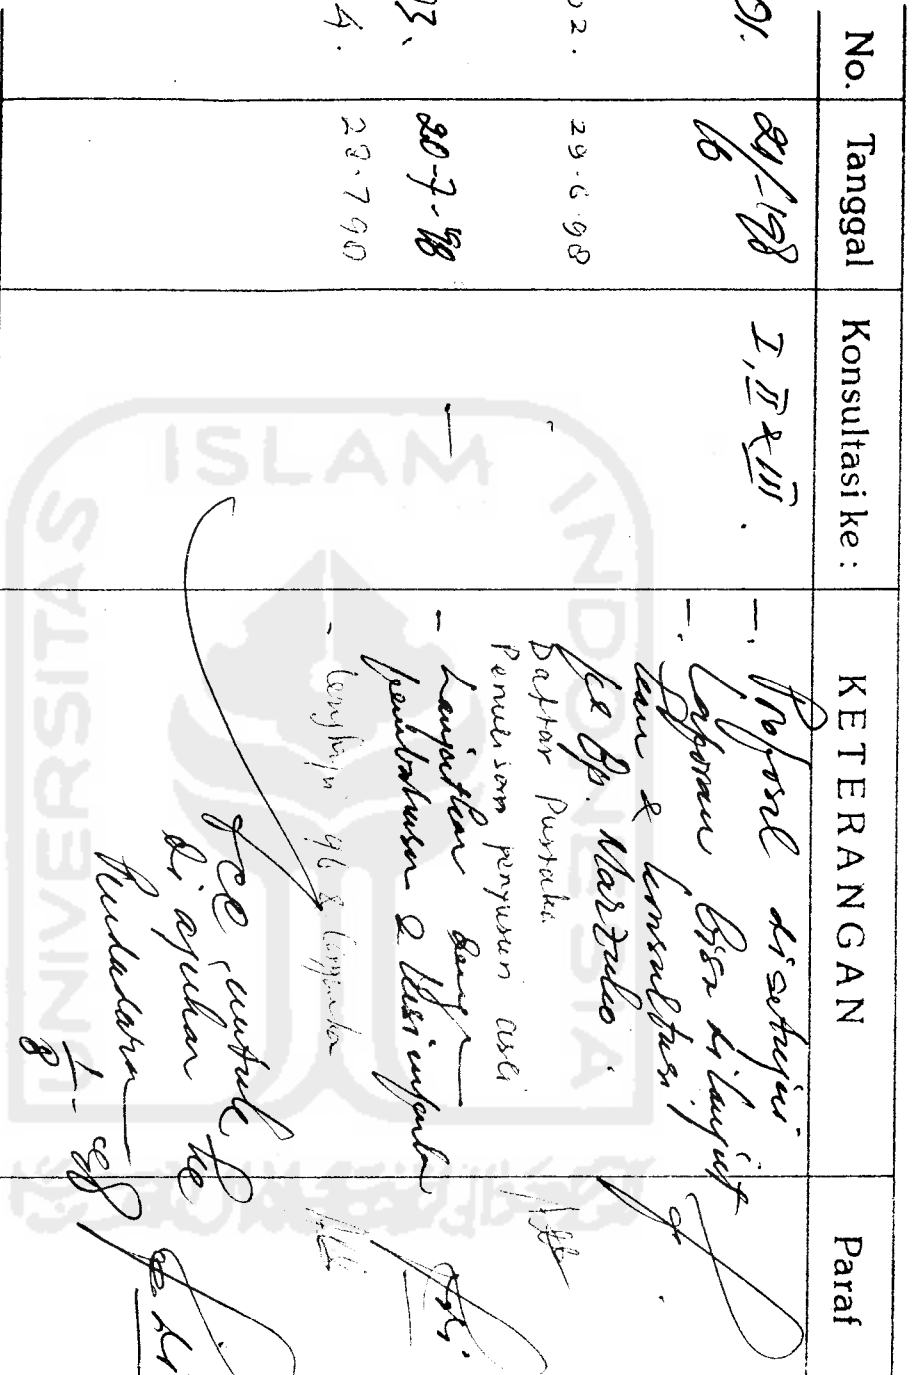 No. Tanggal Konsultasi ke : KETERANGAN Paraf
01. 21/6-'98 I, II & III. -. Proposal disetujui.
-. Laporan bisa dilanjut
kan & konsultasi
ke Bp. Marzuko.
02. 29.6.98 Daftar Pustaka
Penulisan penyusun asli
03. 20-7-'98 - - Lanjutkan dengan
pembahasan & Kesimpulan
4. 29.7.98 -
Acc untuk
di ajukan ke
Pendadaran
1/8 - 98
UNIVERSITAS ISLAM INDONESIA